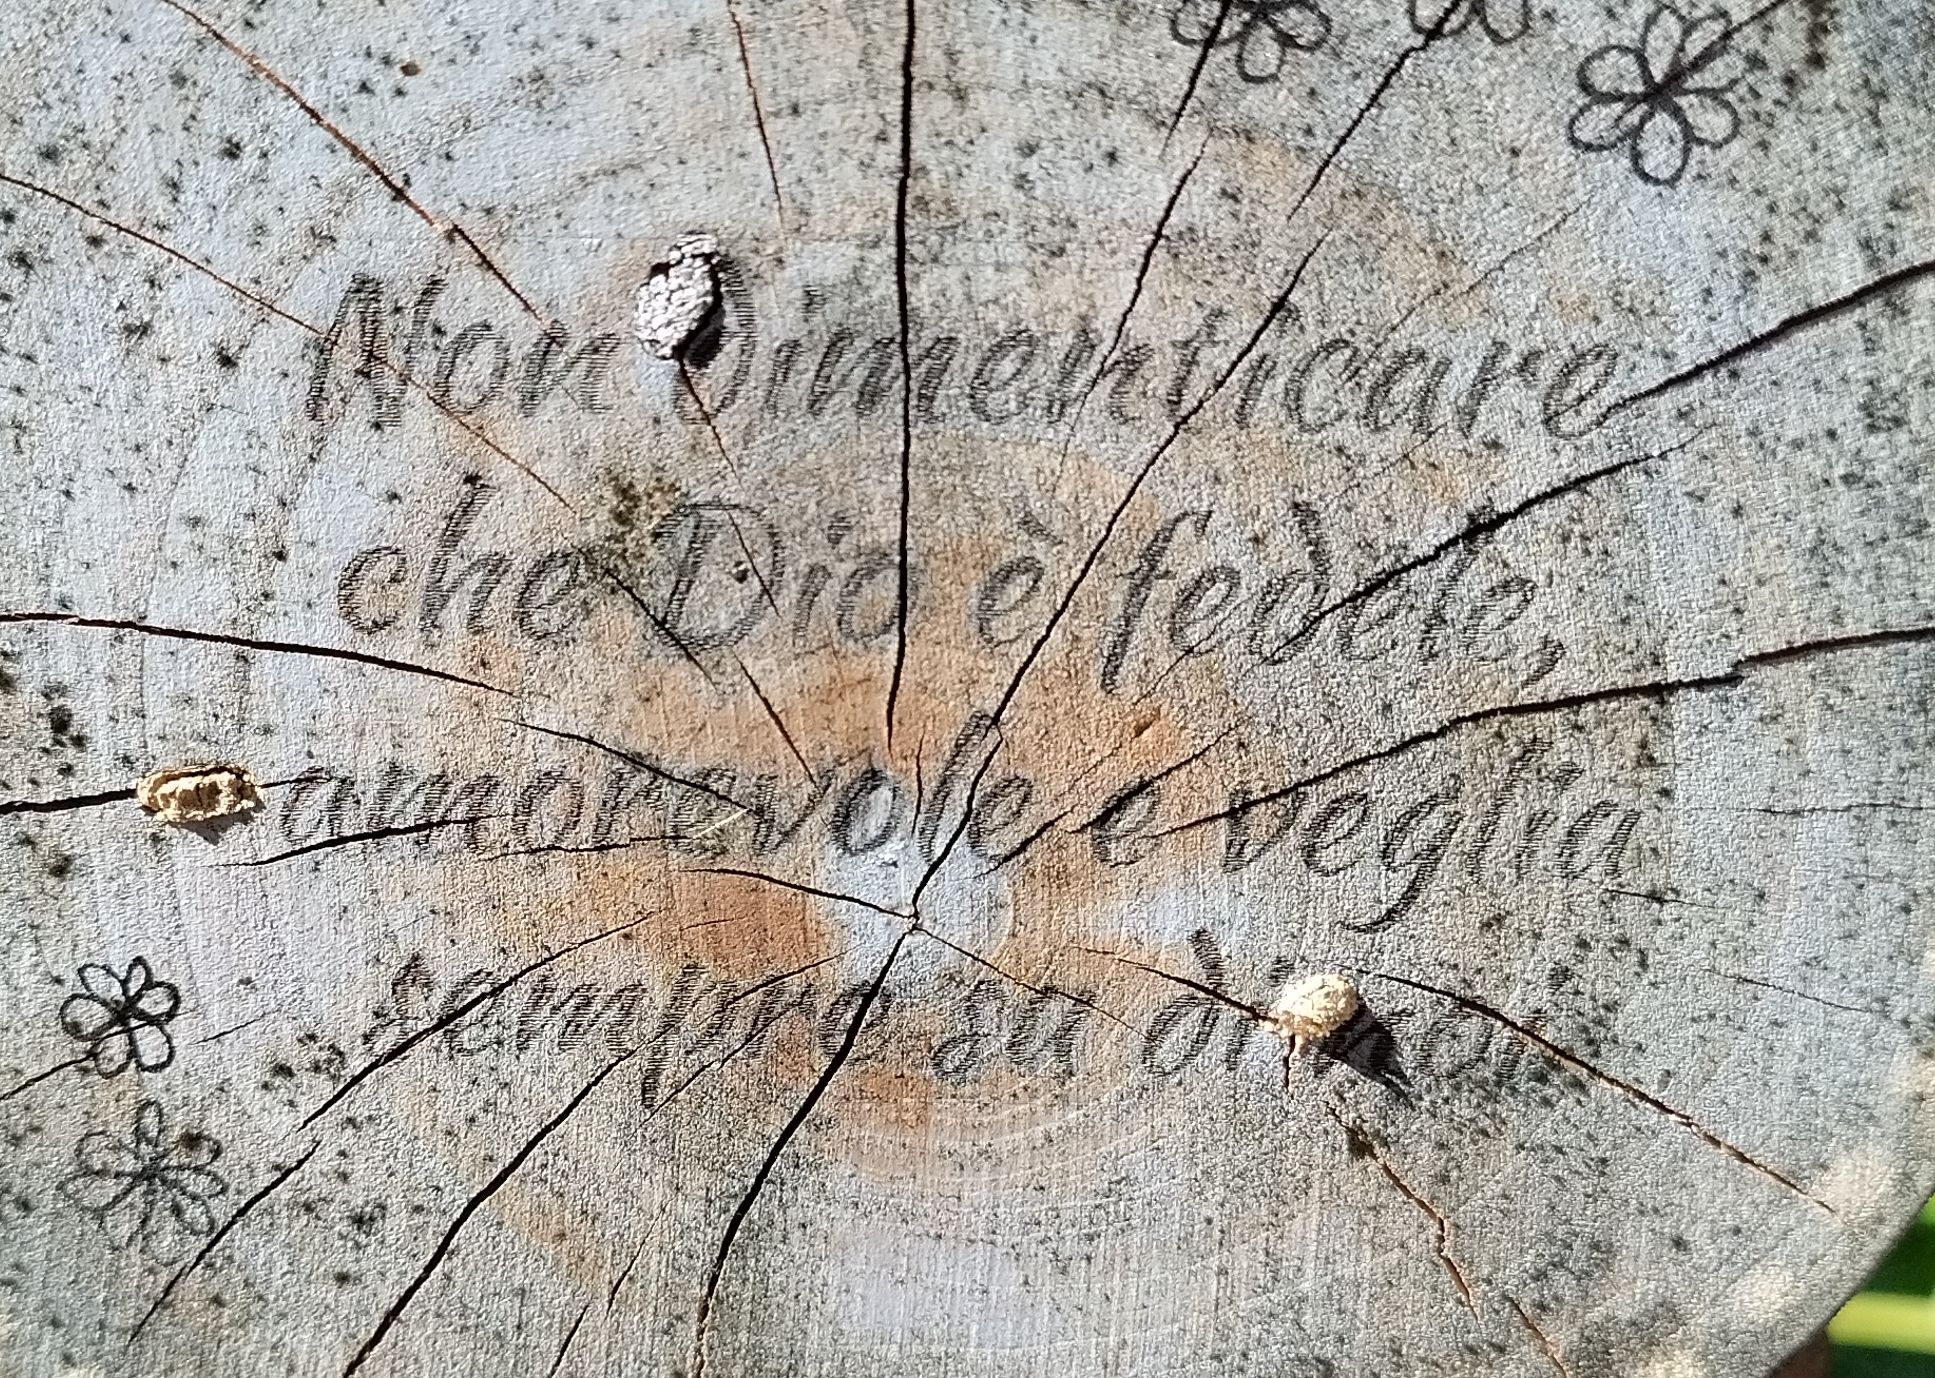 Non dimenticare
che Dio è fedele,
amorevole e veglia
sempre su di noi